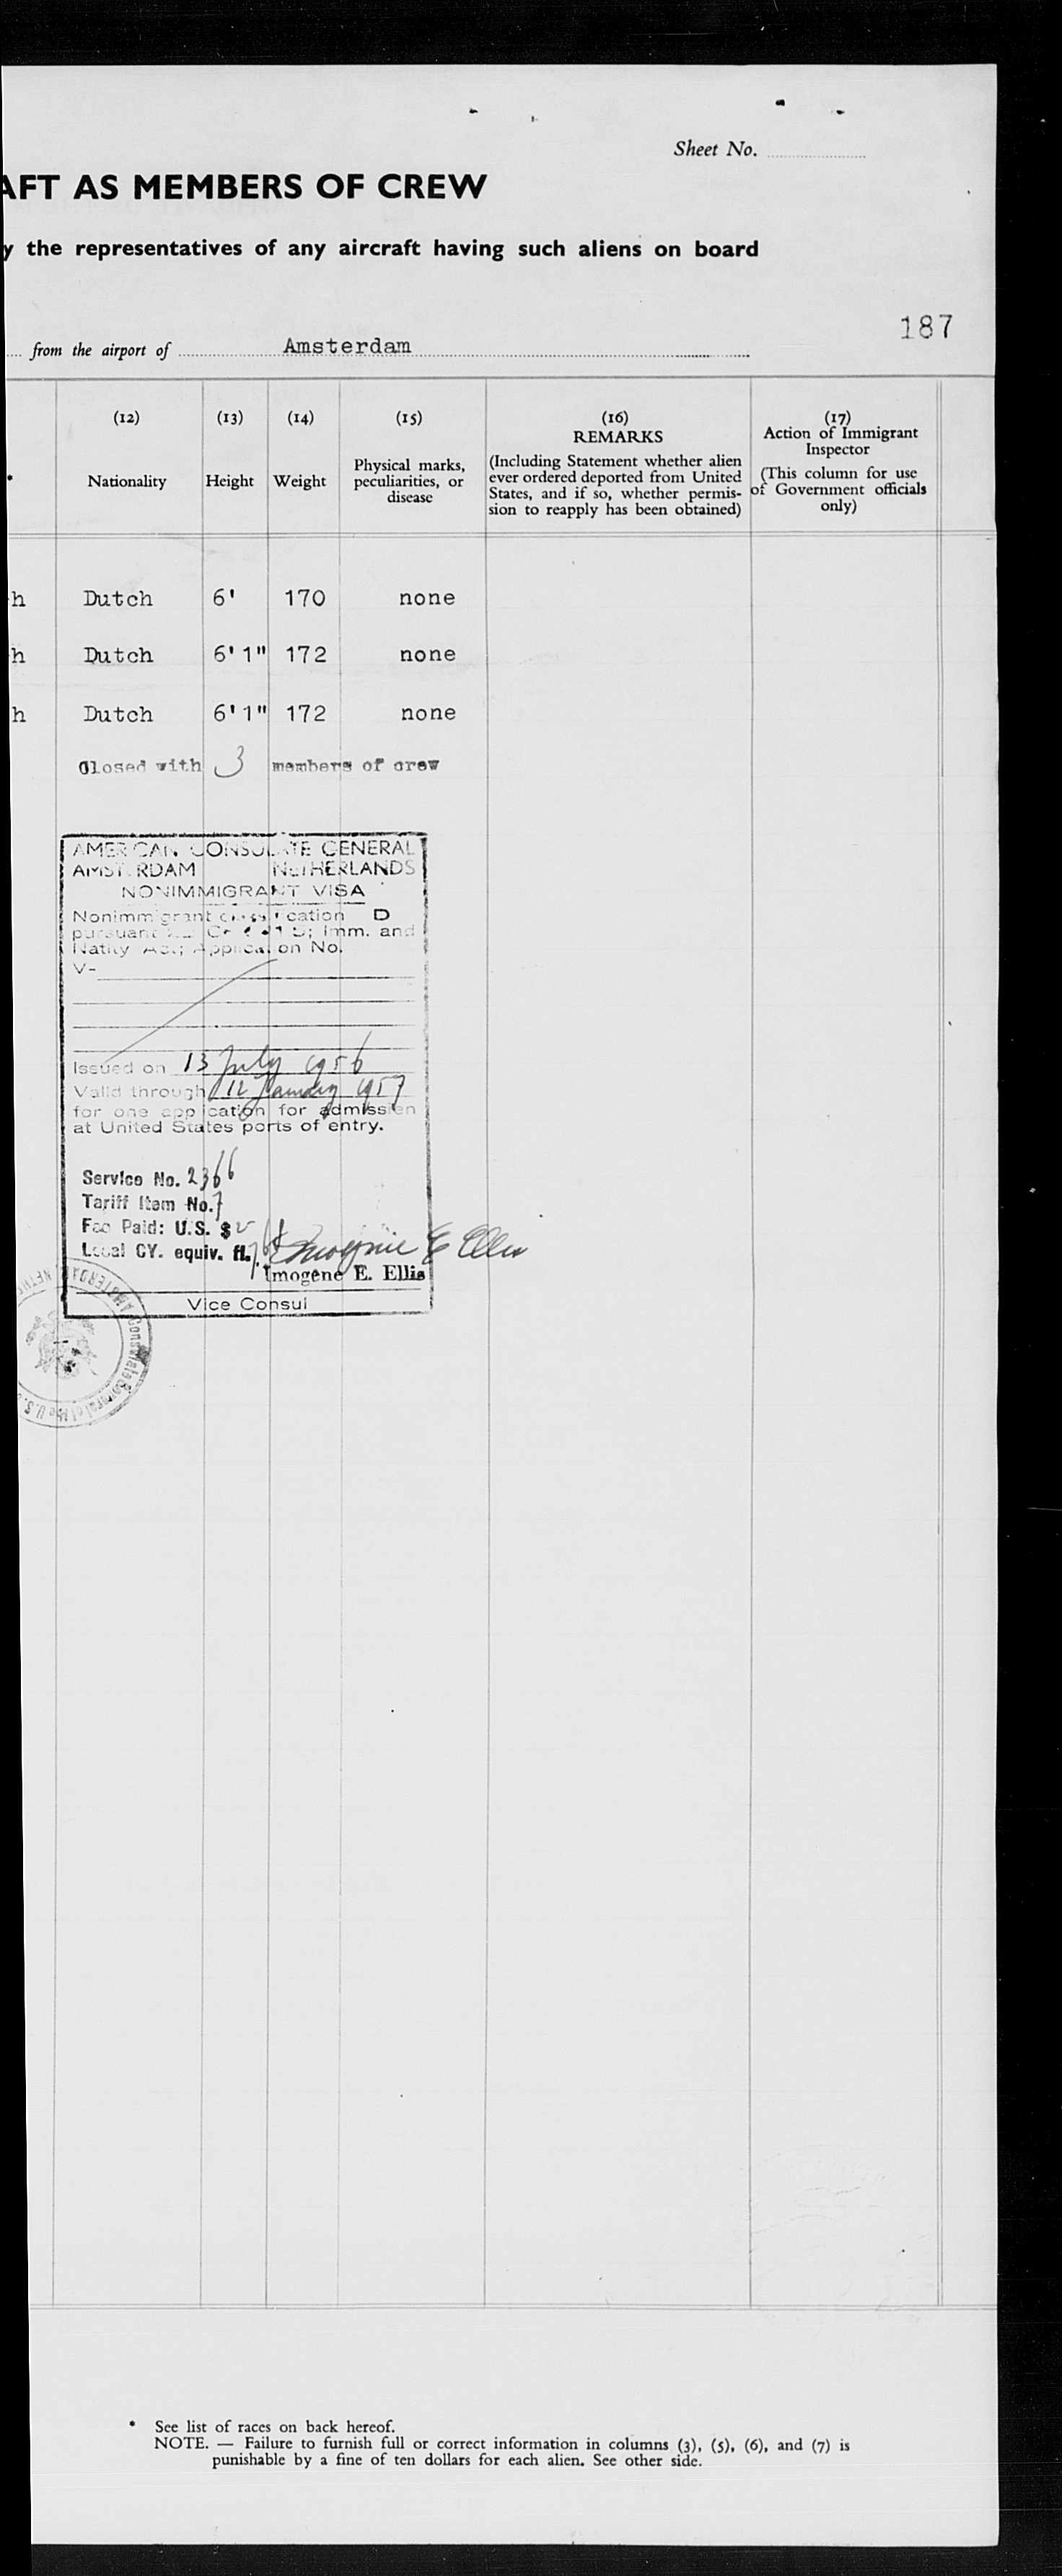 Sheet No.
AFT AS MEMBERS OF CREW
y the representatives of any aircraft having such aliens on board
187
from the airport of Amsterdam
(12) (13) (14) (15) (16) (17)
Nationality Height Weight Physical marks, peculiarities, or disease
REMARKS
(Including Statement whether alien
ever ordered deported from United
States, and if so, whether permis-
sion to reapply has been obtained)
Action of Immigrant
Inspector
(This column for use
of Government officials
only)
h Dutch 6' 170 none
h Dutch 6'1" 172 none
h Dutch 6'1" 172 none
Closed with 3 members of crew
AMERICAN CONSULATE GENERAL
AMSTERDAM NETHERLANDS
NONIMMIGRANT VISA
Nonimmigrant classification D
pursuant Imm. and
Natity Act; Application No.
V-
Issued on 13 July 1956
Valid through 12 January 1957
for one application for admission
at United States ports of entry.
Service No. 2366
Tariff Item No. 7
Fee Paid: U.S. $
Local CY. equiv. fl.
Imogene E Ellis
Imogene E. Ellis
Vice Consul
* See list of races on back hereof.
NOTE. — Failure to furnish full or correct information in columns (3), (5), (6), and (7) is
punishable by a fine of ten dollars for each alien. See other side.